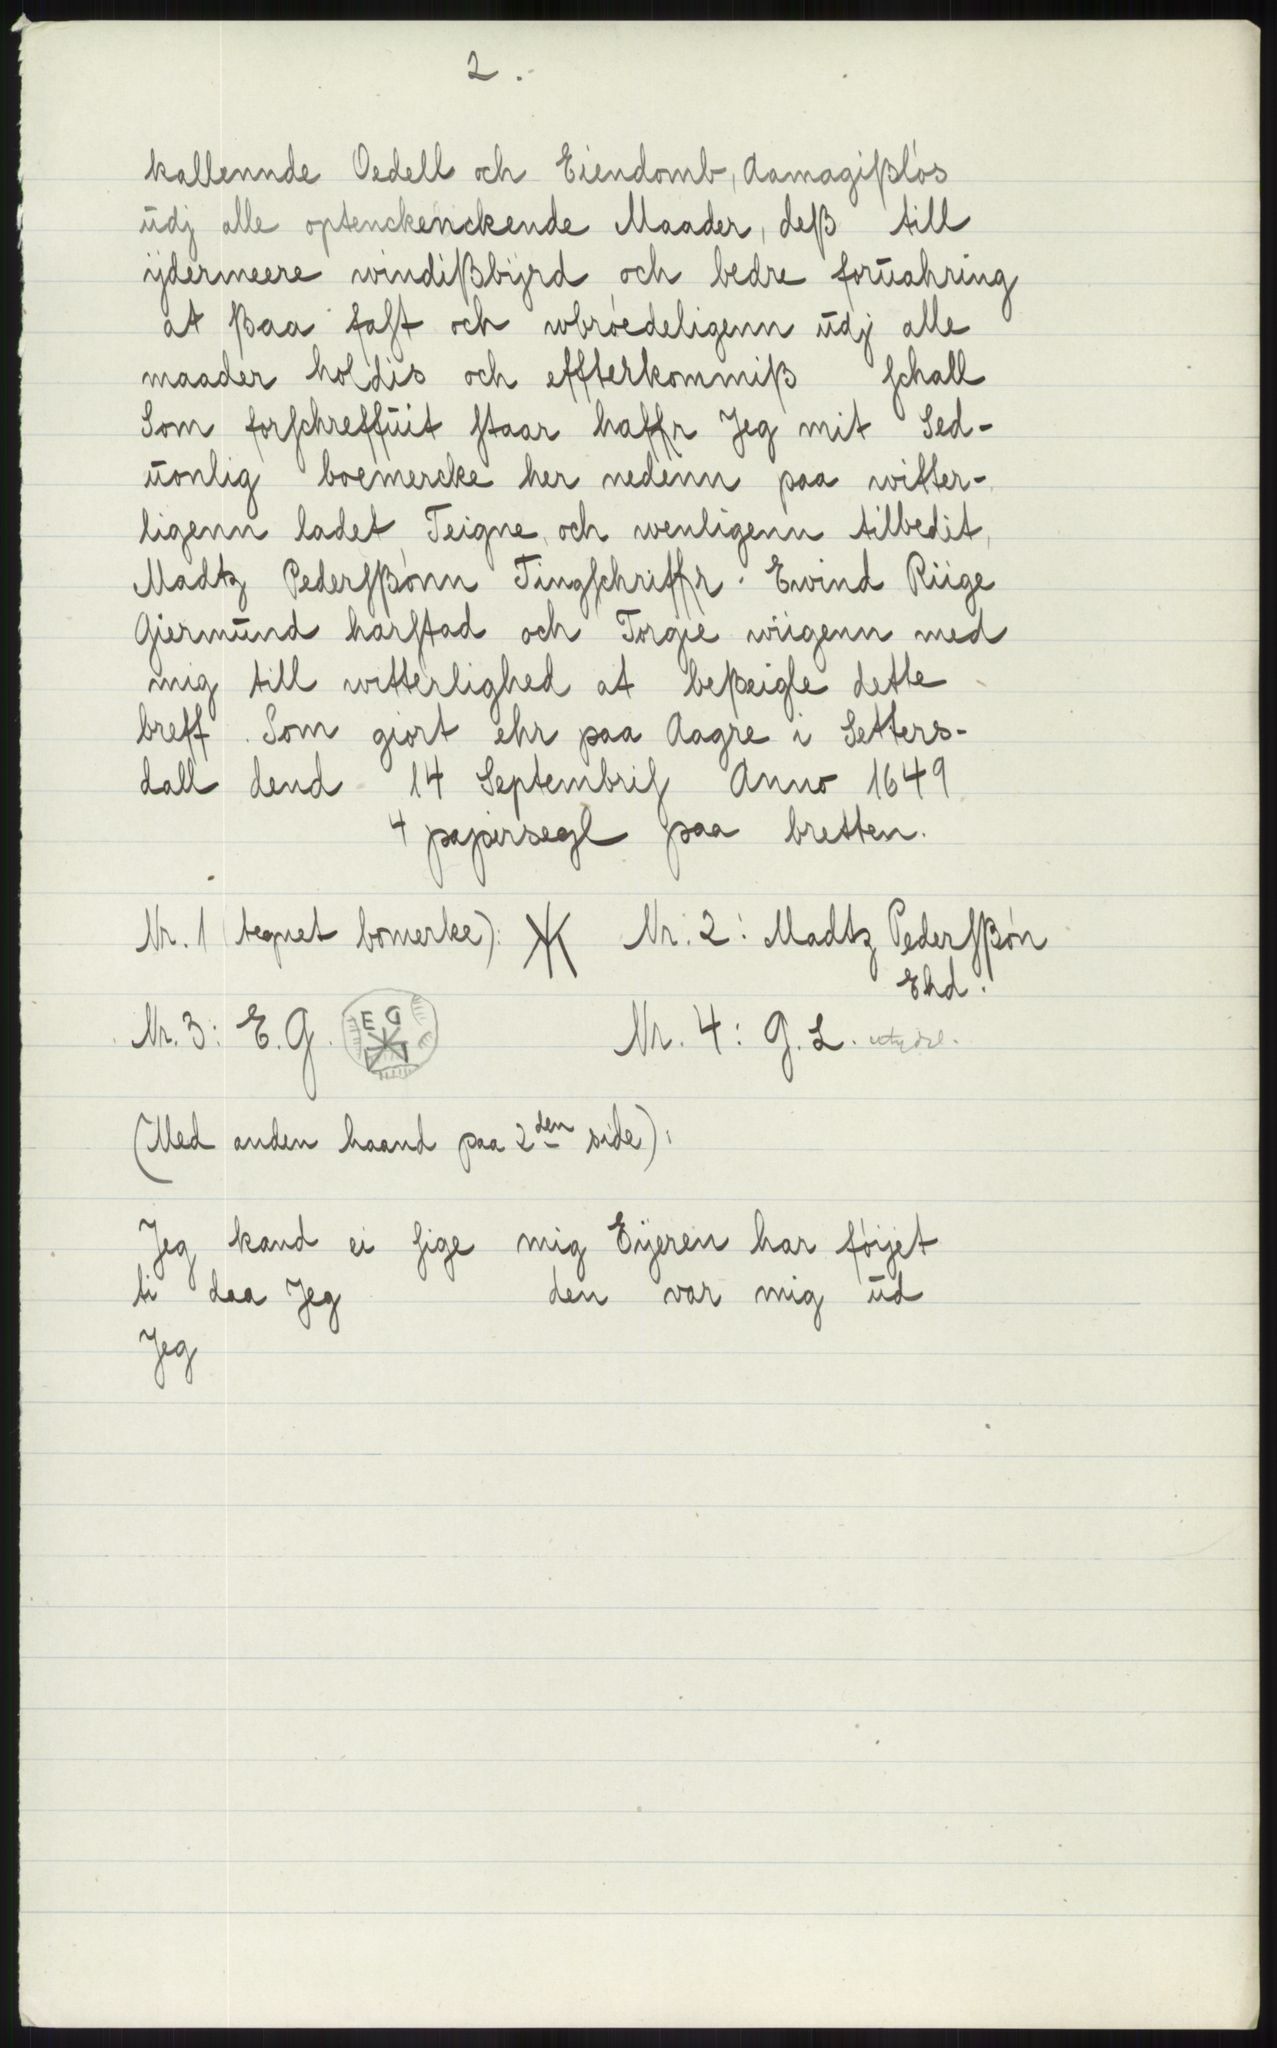 2.
kallennde Oedell och Eiendomb, Aamagißløs
ūdj alle optenckenckende Maader, deß till
ÿdermeere windißbÿrd och bedre forūahring
at ßaa faſt och wbrøedeligenn ūdj alle
maader holdis och effterkommiß ſchall
Som forſchreffūit ſtaar haffr Jeg mit Sed-
ūonlig boemercke her nedenn paa witter-
ligenn ladet Teigne, och wenligenn tilbedit,
Madtz Pederſßønn Tingſchriffr. Ewind Riige
Giermūnd harſtad och Torgie wiigenn med
mig till witterlighed at beßeigle dette
breff. Som giort ehr paa Aagre i Setters-
dall dend 14 Septembriſ Anno 1649
4 papirsegl paa bretten.
Nr. 1 (tegnet bomerke): Nr. 2: Madtz Pederſßøn
Ehd.
Nr. 3: E. G. E G Nr. 4: G. L. utydel.
(Med anden haand paa 2den side):
Jeg kand ei ſige mig Eÿeren har føÿet
ti daa Jeg den var mig ūd
Jeg